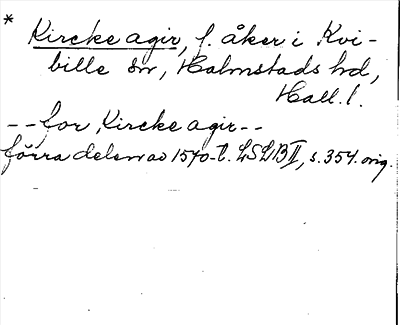 *
Kircke agir, f. åker i Kvi-
bille sn, Halmstads hd,
Hall. l.
-- for Kircke agir --
förra delen av 1570-t. LSLB II, s. 354. orig.